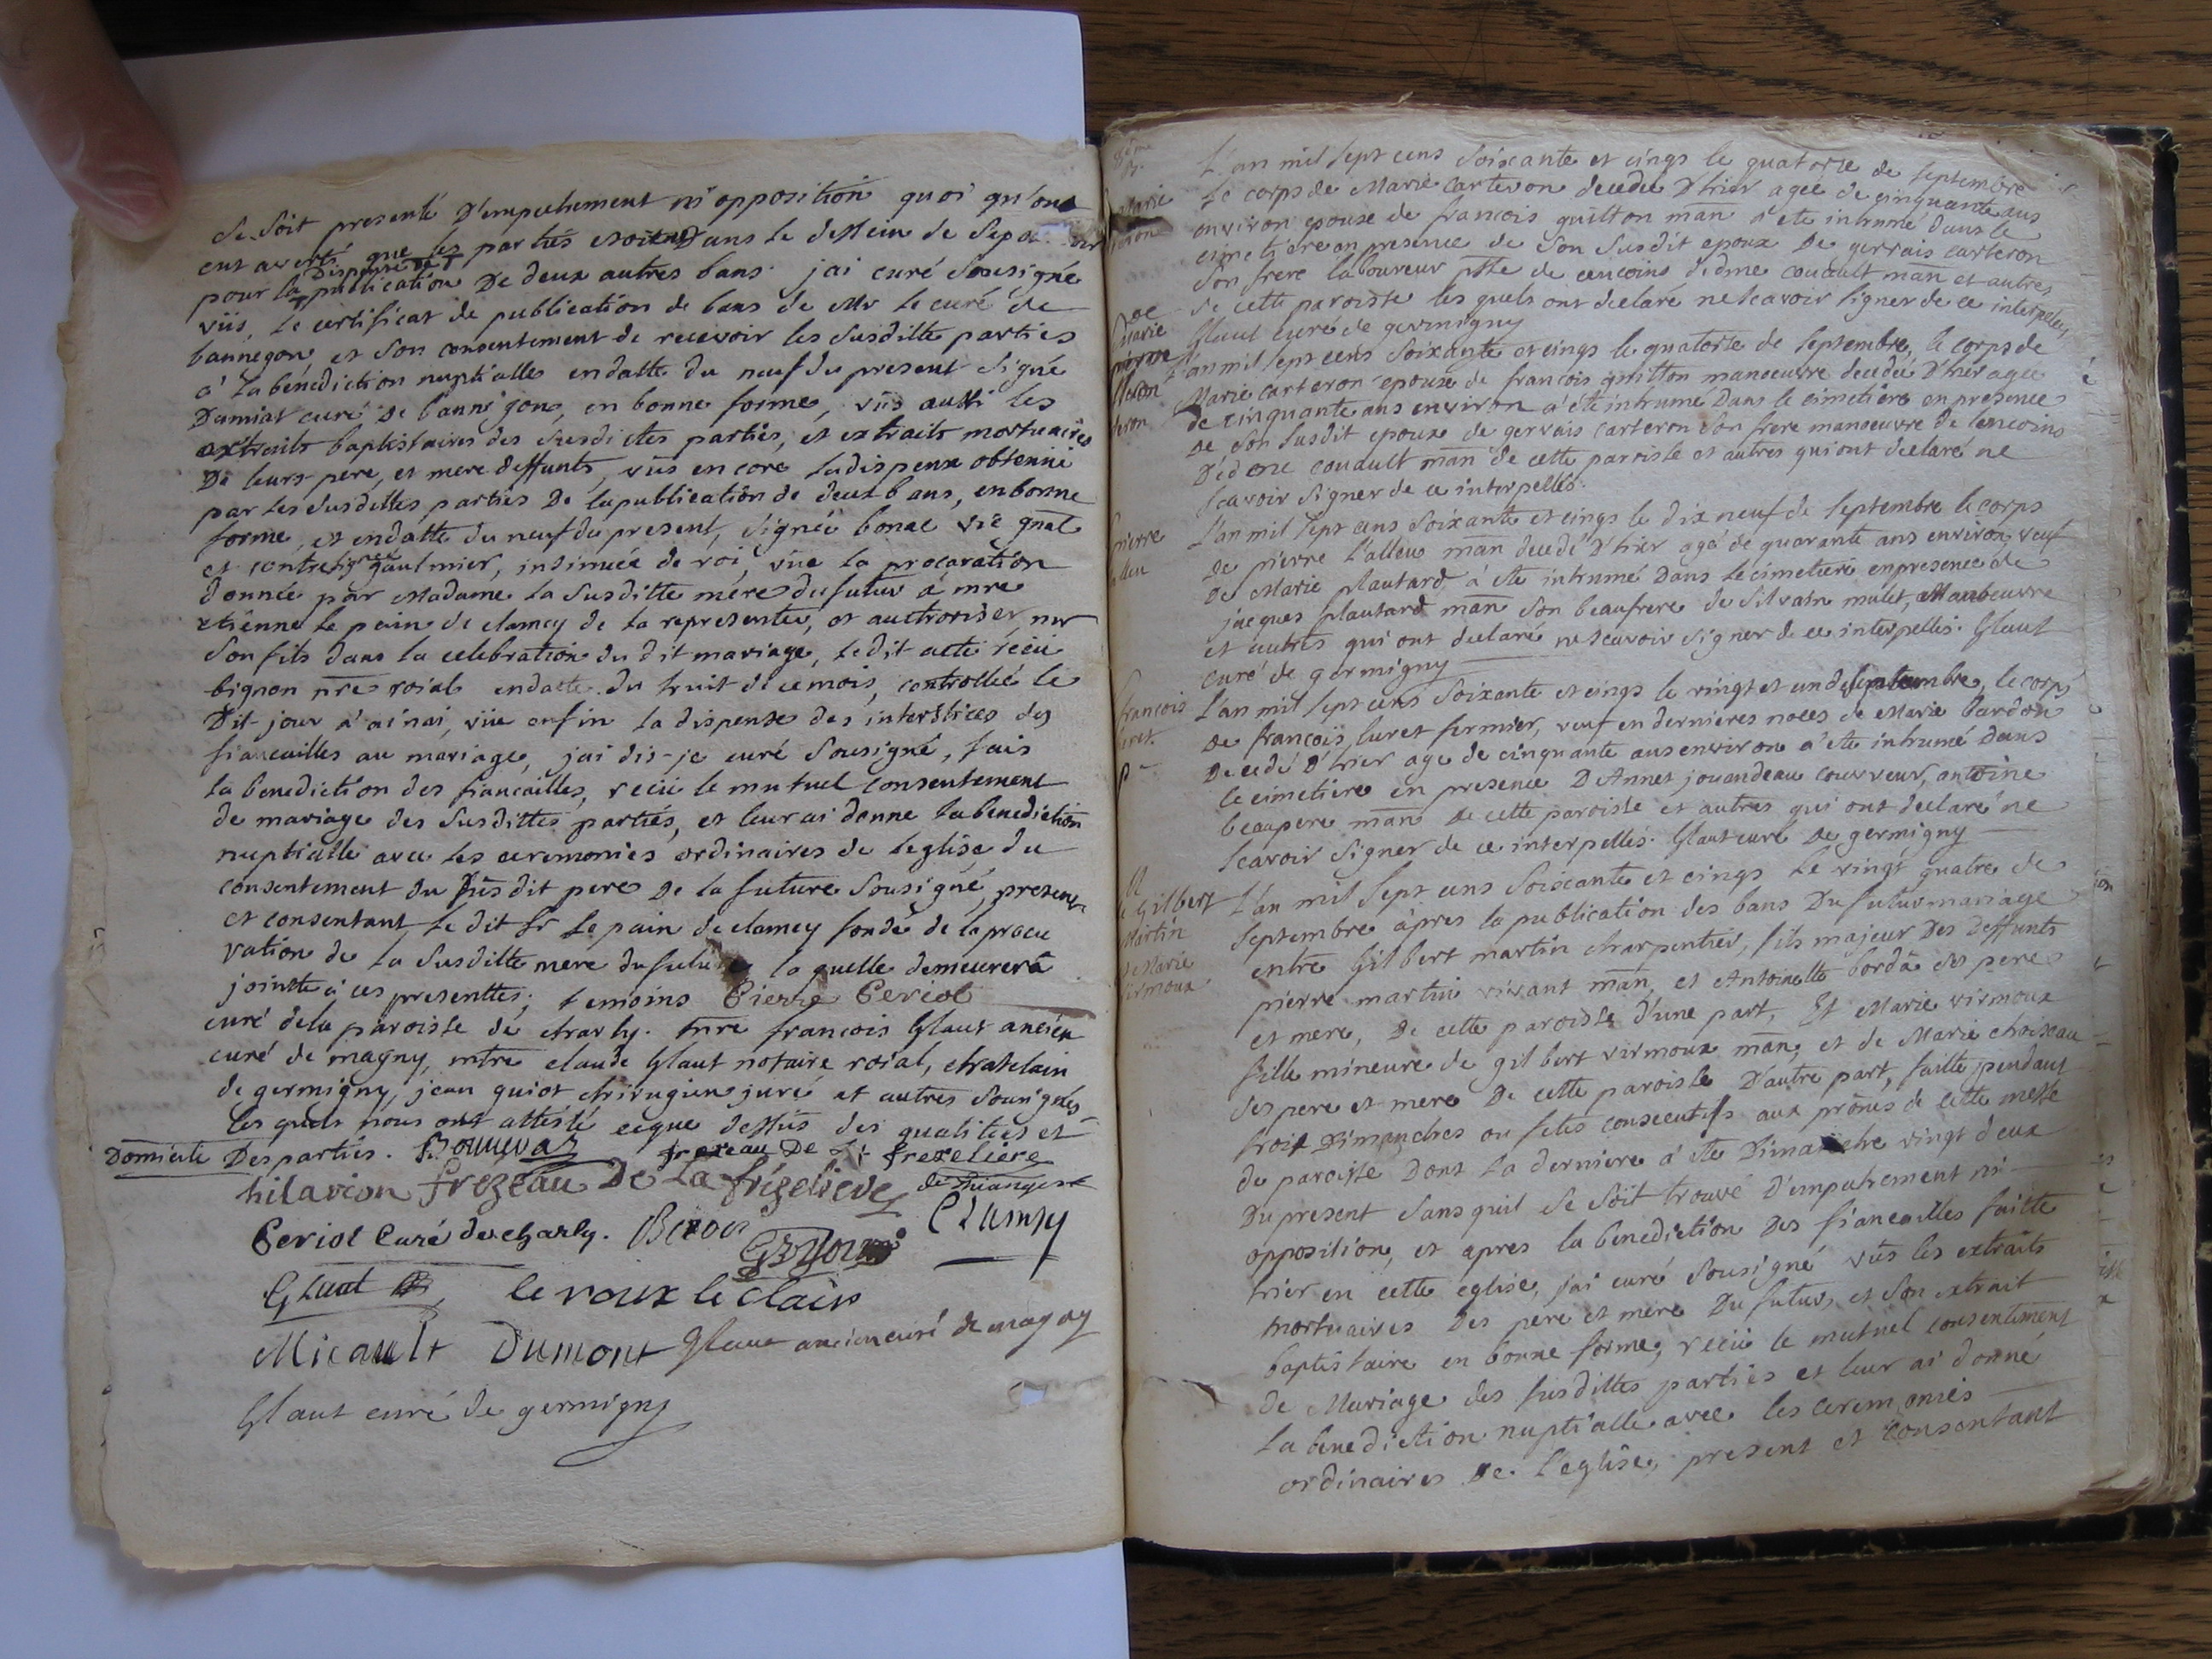 se soit presenté d'empechement ni opposition quoi qu'on
eut averti que les parties etoient dans le dessein de se
pour la dispense de publication de deux autres bans. jai curé sousigné
vûs, le certificat de publication de bans de Mr le curé de
bannegon, et son consentement de recevoir les susditte parties
a' la bénédiction nuptialle en datte du neuf du present signé
Damiat curé de bannegon, en bonne forme, vûs aussi les
extraits baptistaires des susdictes parties, et extraits mortuaires
de leurs pere, et mere deffunts, vûs encore la dispense obtenüe
par les susdittes parties de la publication de deux bans, en bonne
forme, et en datte du neuf du present, signée bonac vic gnal
et contresignée gaulmier, insinuée de roi, vüe la procuration
donnée par Madame la susditte mere du futur a mre
etienne le pain de clamecy de la representer, et authoriser mr
son fils dans la celebration du dit mariage, le dit acte récu
bignon nre roial en datte du huit de ce mois, controllée le
dit jour a' ainai, vüe enfin la dispense des interstices des
fiancailles au mariage, jai dis-je curé sousigné, fais
la benediction des fiancailles, recü le mutuel consentement
de mariage des susdittes parties, et leur ai donne la benediction
nuptialle avec les ceremonies ordinaires de leglise du
consentement du susdit pere de la future sousigné, present
et consentant le dit sr le pain de clamecy fondé de la procu
ration de la susditte mere du futur la quelle demeurera
jointte a ces presenttes; temoins Pierre Periot
curé de la paroisse de charly. mre francois Glaut ancien
curé de magny, mtre claude Glaut notaire roial, chatelain
de germigny, jean guiot chirugien juré et autres sousignés
les quels nous ont attesté ceque dessus des qualitées et
Domicile des parties. Bonneval frezeau De La frezeliere
hilarion frezeau De La frézeliere de thiange
Periot Curé de charly. Clamcy
Glaut le roux leclair
Micault Dumont Glaut ancien curé de magny
Glaut curé de germigny
L'an mil sept cens soixante et cinqs le quatorze de septembre
le corps de Marie carteron decedée d'hier agée de cinquante ans
environ epouse de francois guitton man a' ete inhumé dans le
cimetiere en presence de son susdit epoux de gervais carteron
son frere laboureur psse de cencoins d'edme couault man et autres
de cette paroisse les quels ont declaré ne scavoir signer de ce interpelés
Glaut curé de germigny
Marie
L'an mil sept cens soixante et cinqs le quatorze de septembre, le corps de
Marie carteron epouse de francois guitton manoeuvre decedée d'hier agée
de cinquante ans environ a' été inhumé dans le cimetiere en presence
de son susdit epoux de gervais carteron son frere manoeuvre de cencoins
d'edme couault man de cette paroisse et autres qui ont declaré ne
scavoir signer de ce interpellés.
pierre
L'an mil sept cens soixante et cinqs le dix neuf de septembre le corps
de pierre l'alleu man decedé d'hier agé de quarante ans environ, veuf
de Marie plautard a' ete inhumé dans le cimetiere en presence de
jacques plautard man son beaufrere de silvain mulet, Manoeuvre
et autres qui ont declaré ne scavoir signer de ce interpellés. Glaut
curé de germigny
francois
luret
L'an mil sept cens soixante et cinqs le vingt et un de septembre, le corps
de francois luret fermier, veuf en dernieres noces de Marie bardon
decedé d'hier age de cinquante ans environ a' ete inhumé dans
le cimetiere en presence d'Annet jouandeau couvreur, antoine
beaupere man de cette paroisse et autres qui ont declaré ne
scavoir signer de ce interpellés. Glaut curé de germigny
M
de Gilbert
Martin
et Marie
Virmoux
L'an mil sept cens soixante et cinqs le vingt quatre de
septembre après la publication des bans du futur mariage
entre Gilbert martin charpentier, fils majeur des deffunts
pierre martin vivant man, et Antoinette borda ses pere
et mere, de cette paroisse d'une part, Et Marie virmoux
fille mineure de gilbert virmoux man, et de Marie choiseau
ses pere et mere de cette paroisse d'autre part, faitte pendant
trois dimanches ou fetes consecutifs aux prônes de cette messe
de paroisse dont la derniere a' ete dimanche vingt deux
du present sans quil se soit trouvé d'empechement ni
opposition, et apres la benediction des fiancailles faitte
hier en cette eglise, jai curé sousigné vûs les extraits
mortuaires des pere et mere du futur, et son extrait
baptistaire en bonne forme, recü le mutuel consentement
de Mariage des susdittes parties et leur ai donné
la benediction nuptialle avec les ceremonies
ordinaires de l'eglise, present et consentant